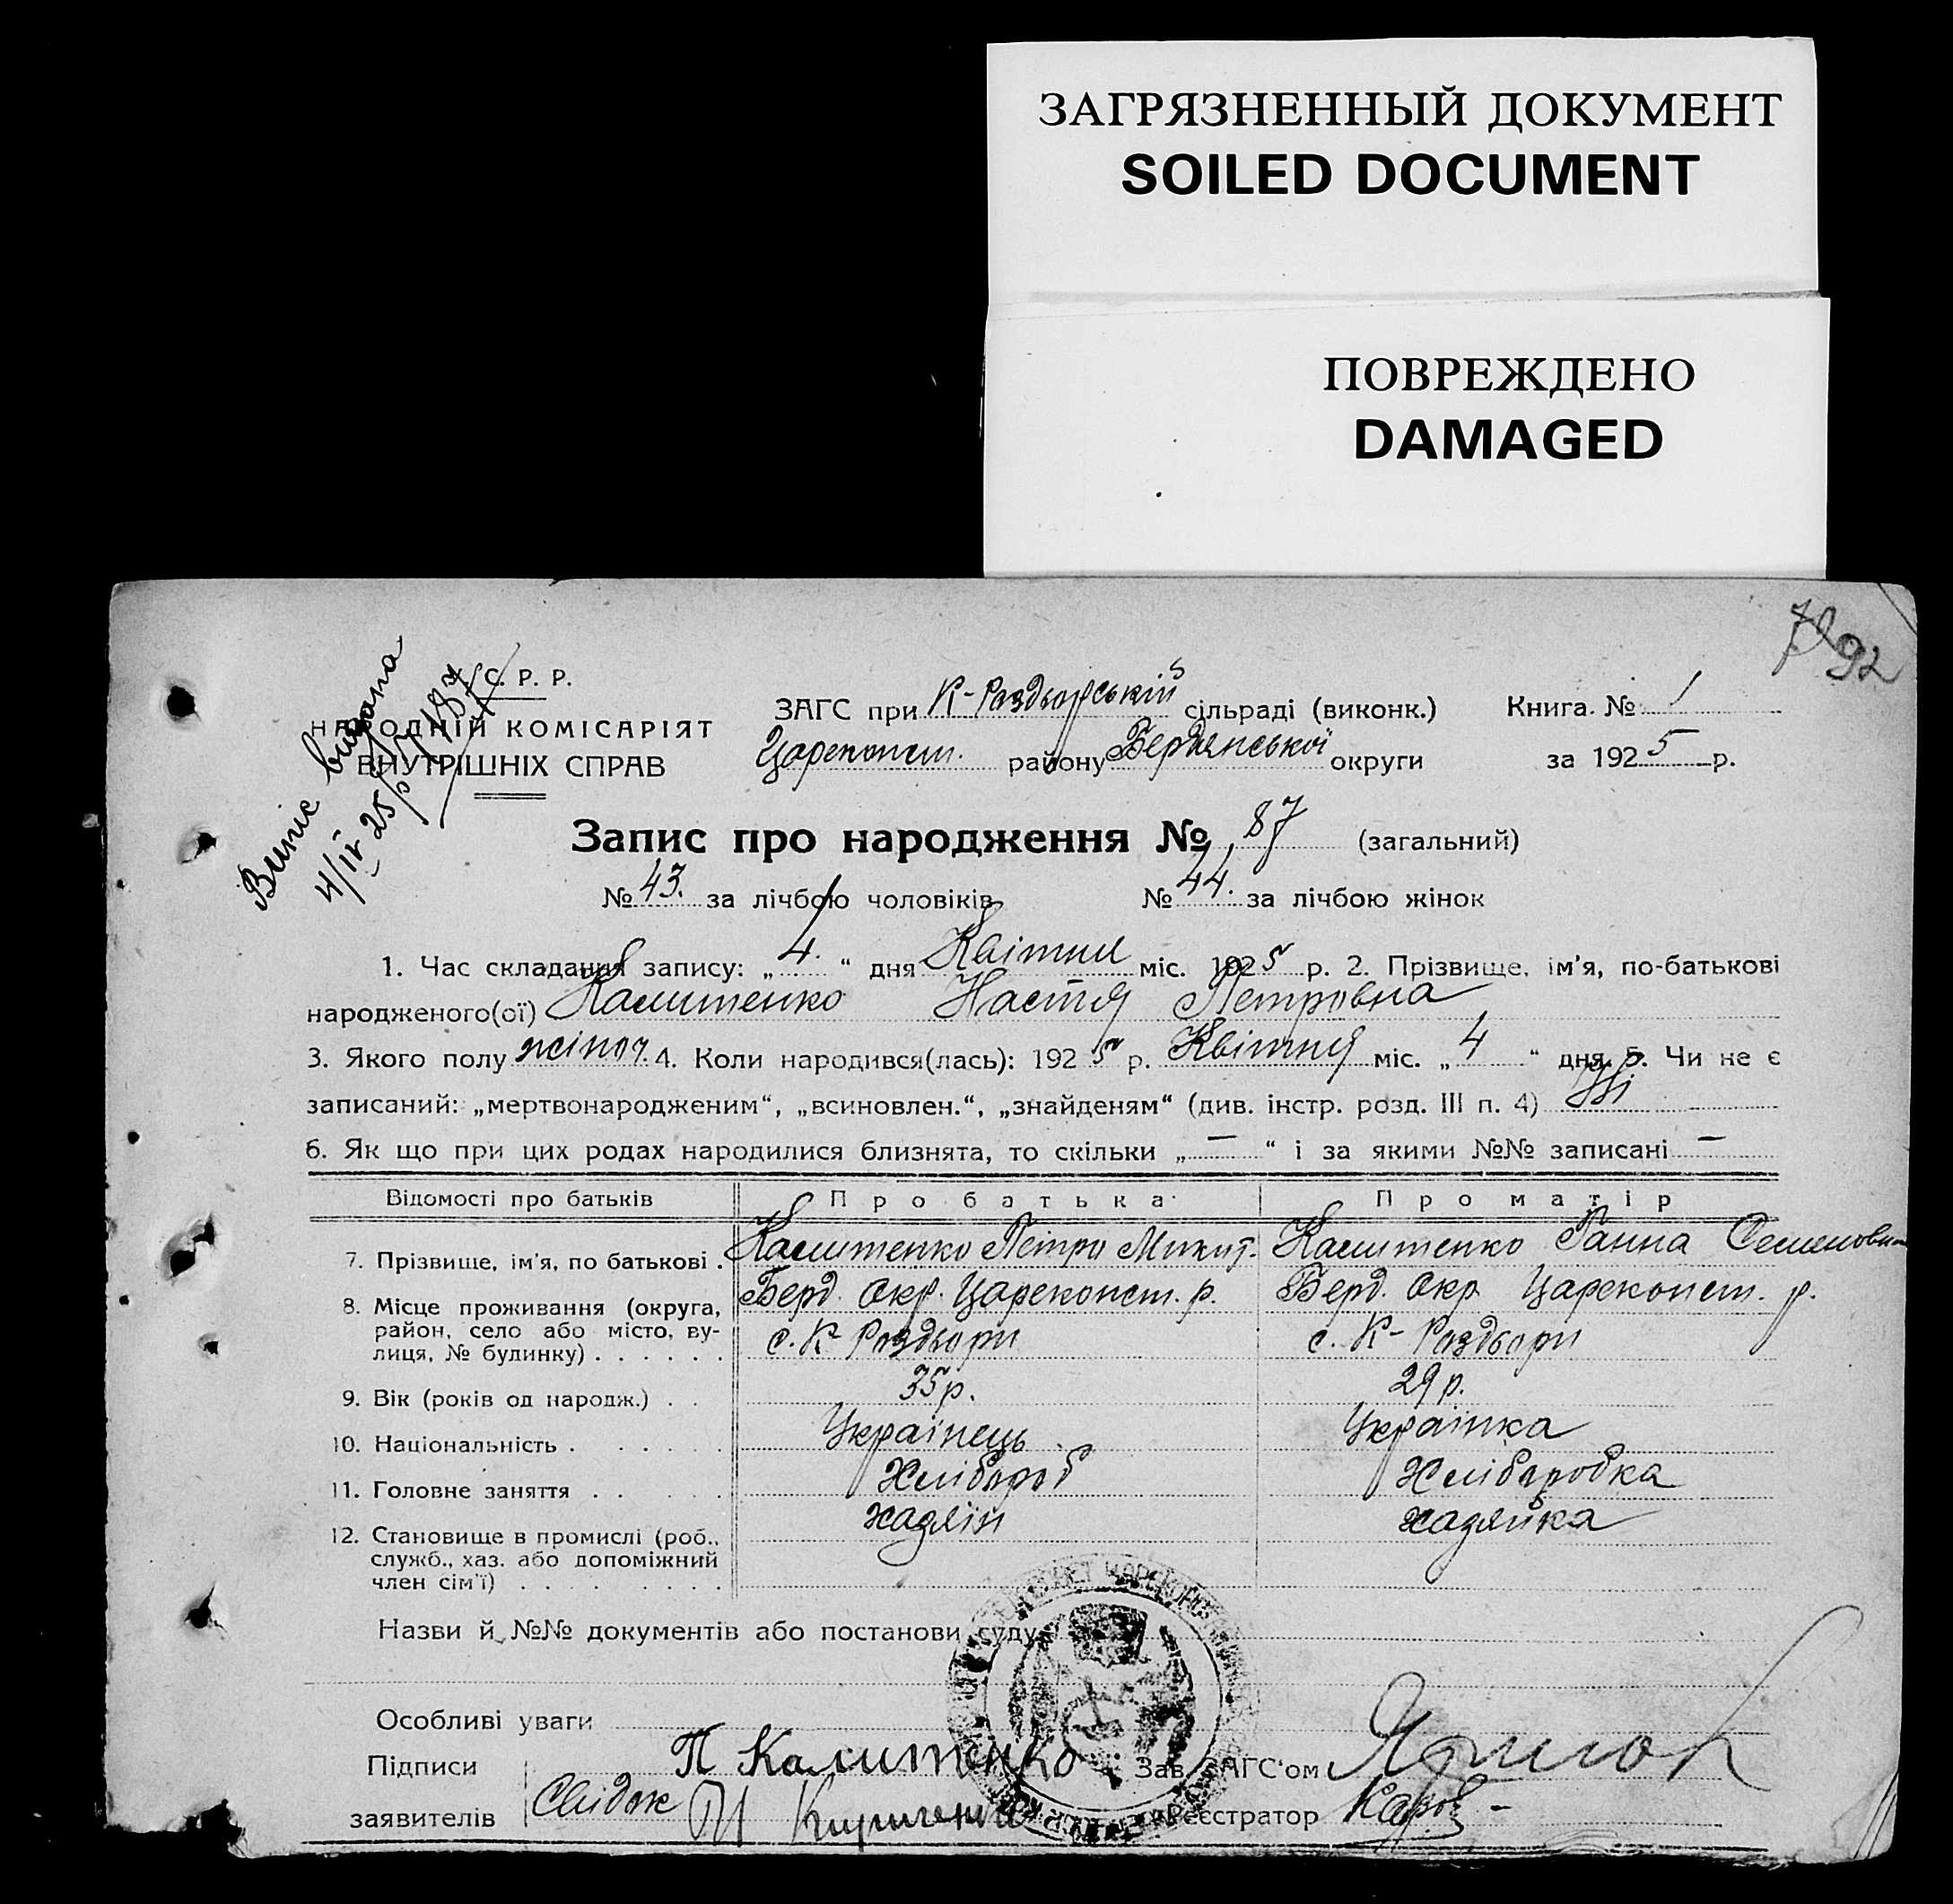 ЗАГРЯЗНЕННЫЙ ДОКУМЕНТ
SOILED DOCUMENT
ПОВРЕЖДЕНО
DAMAGED
92
Випис видана
4/IV 25 р. 187
С. Р. Р.
НАРОДНІЙ КОМІСАРІЯТ
ВНУТРІШНІХ СПРАВ
ЗАГС при К-Роздорській сільраді (виконк.) Книга № 1
Цареконст. району Бердянської округи за 1925 р.
Запис про народження № 87 (загальний)
№ 43. за лічбою чоловіків № 44. за лічбою жінок
1. Час складання запису: „4.“ дня Квітня міс. 1925 р. 2. Прізвище, ім'я, по-батькові
народженого(ої) Калитенко Настя Петровна
3. Якого полу жіноч. 4. Коли народився(лась): 1925 р. Квітня міс. „4“ дня. 5. Чи не є
записаний: „мертвонародженим“, „всиновлен.“, „знайденям“ (див. інстр. розд. III п. 4) Ні
6. Як що при цих родах народилися близнята, то скільки „—“ і за якими №№ записані —
Відомості про батьків Про батька Про матір
7. Прізвище, ім'я, по батькові . Калитенко Петро Микит. Калитенко Ганна Семеновна
8. Місце проживання (округа, Берд. Окр. Цареконст. р. Берд. Окр. Цареконст. р.
район, село або місто, ву- с. К-Роздьори с. К-Роздьори
лиця, № будинку) . . . . . .
9. Вік (років од народж.) . . 35 р. 29 р.
10. Національність . . . . . Українець Українка
11. Головне заняття . . . . . Хлібороб Хліборобка
12. Становище в промислі (роб., хазяїн хазяйка
служб., хаз. або допоміжний
член сім'ї) . . . . . . . .
Назви й №№ документів або постанови суду
Особливі уваги
Підписи П Калитенко Зав. ЗАГС'ом
заявителів Свідок Кириченко Реєстратор